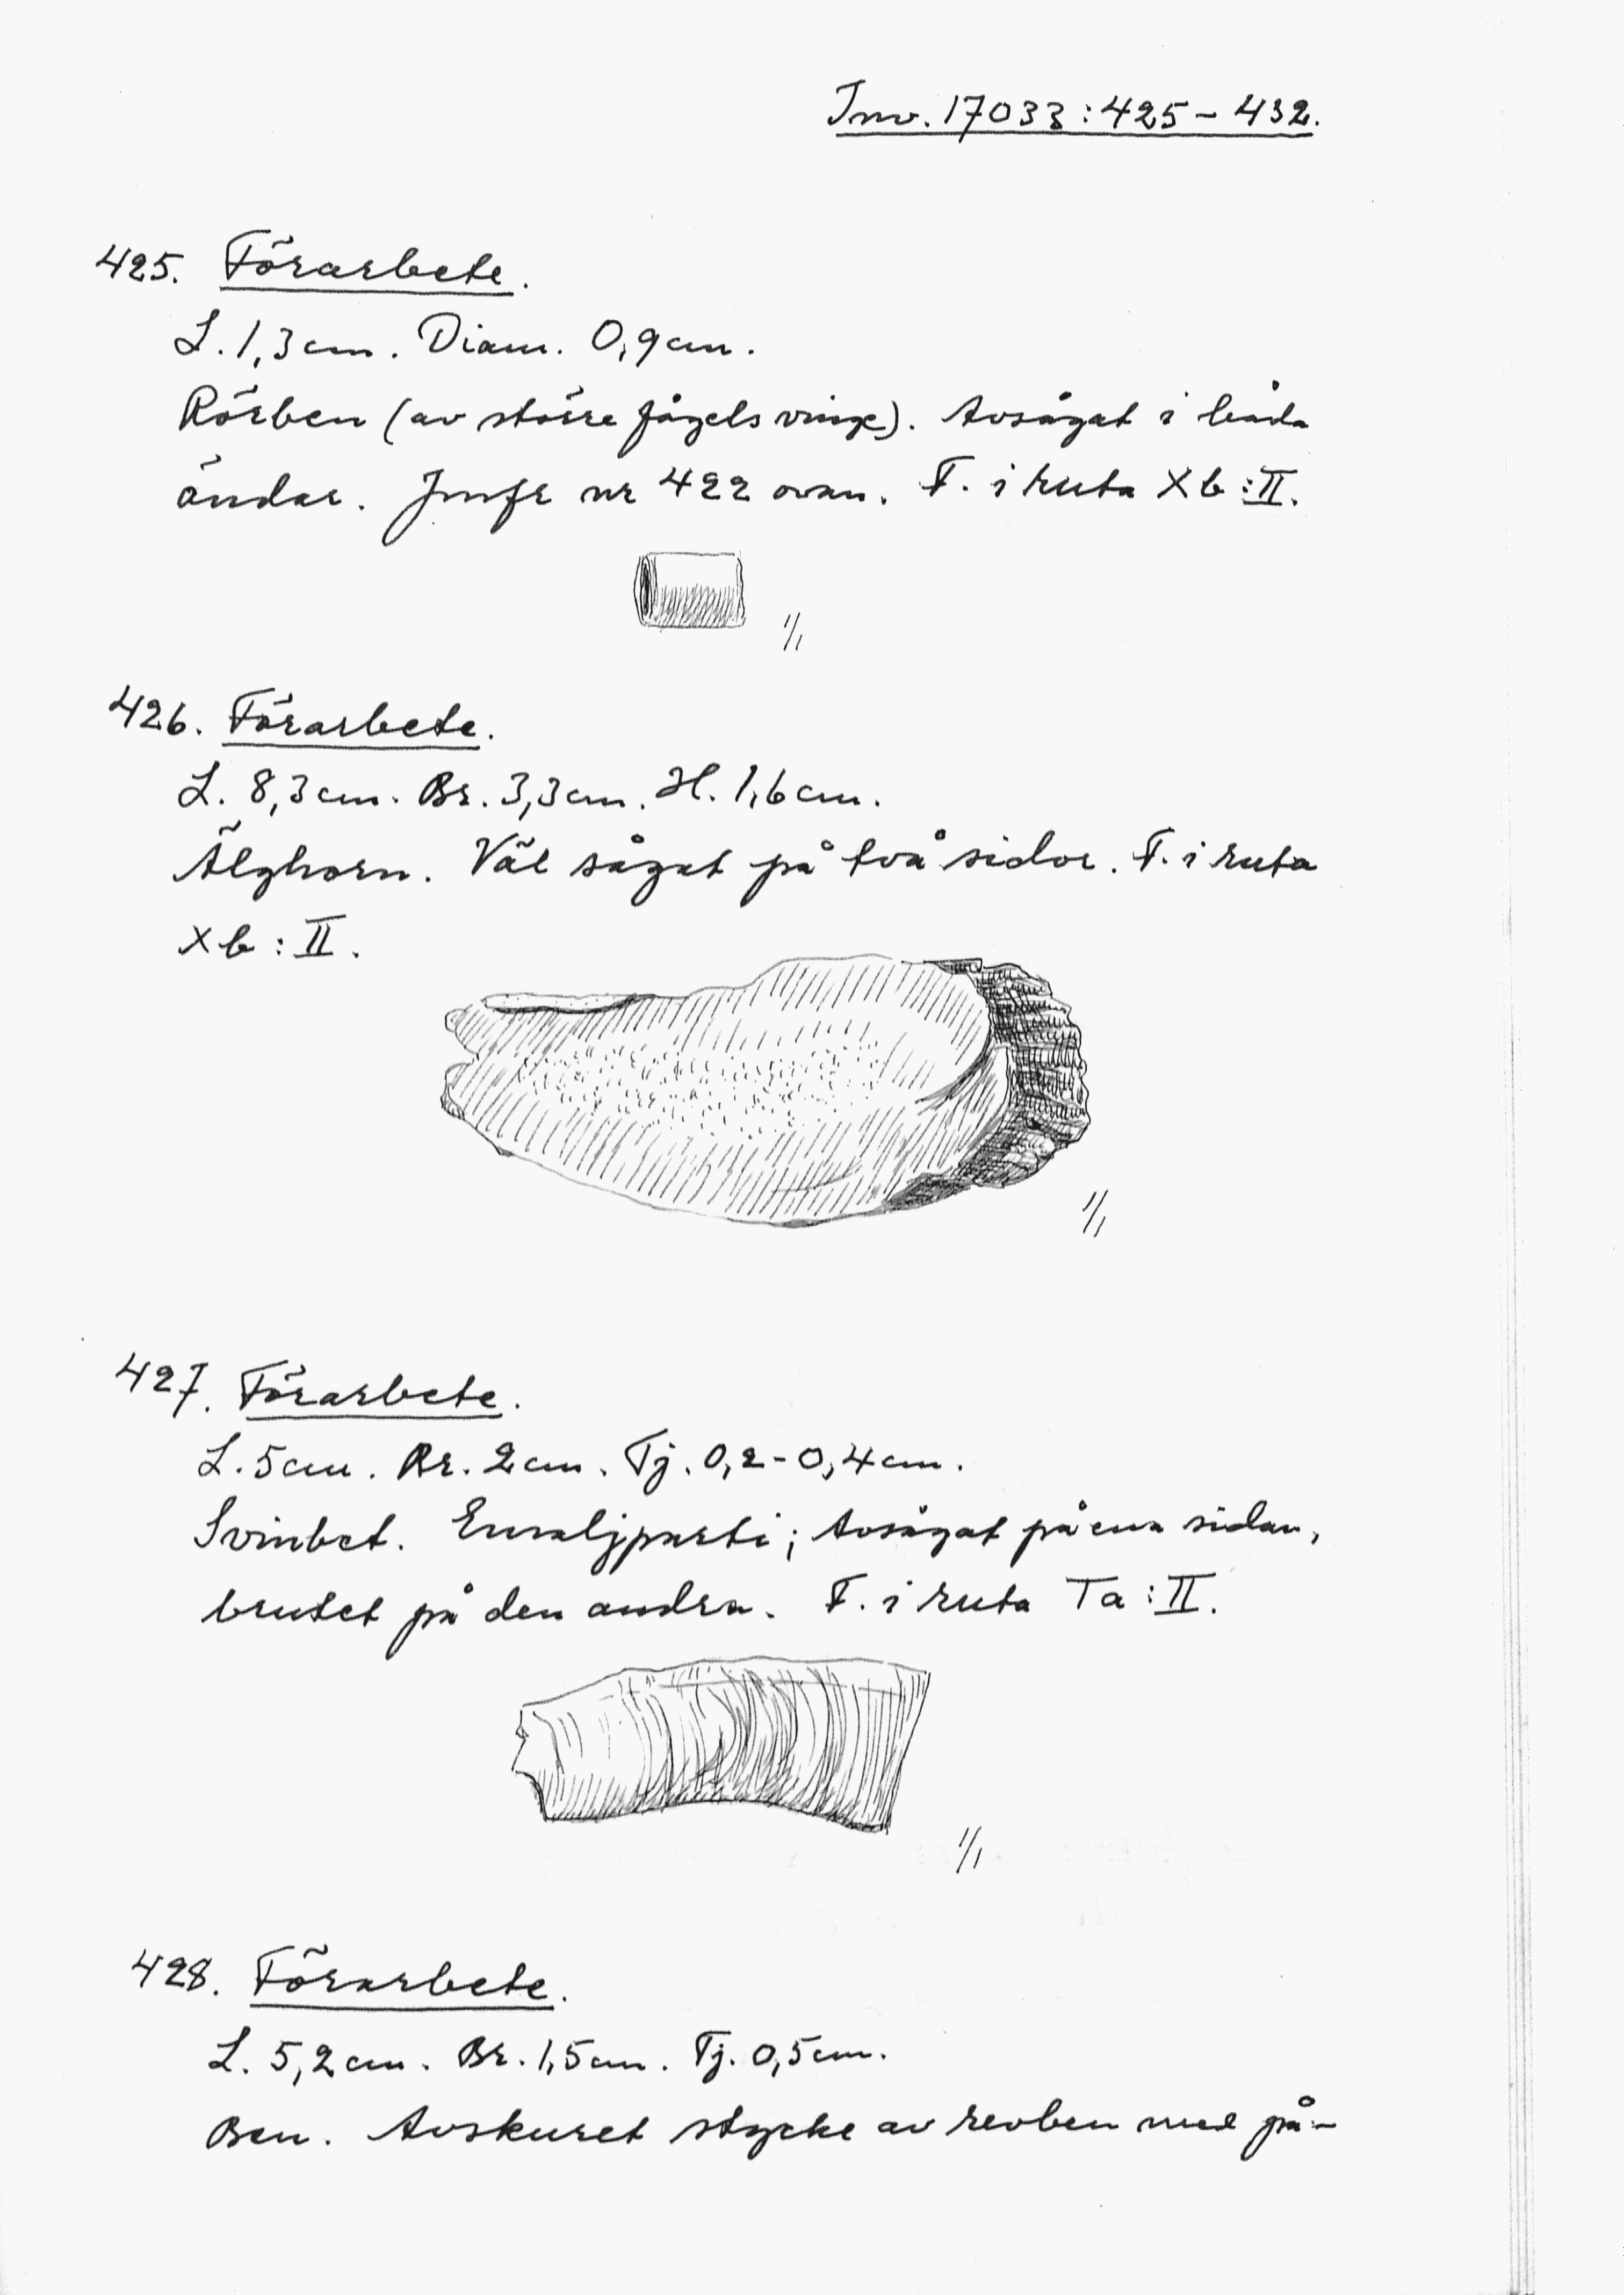 Inv. 17033:425-432.
425. Förarbete.
L. 1,3 cm. Diam. 0,9 cm.
Rörben (av större fågels vinge). Avsågat i båda
ändar. Jmfr nr 422 ovan. F. i ruta Xb:II.
1/1
426. Förarbete.
L. 8,3 cm. Br. 3,3 cm. H. 1,6 cm.
Älghorn. Väl sågat på två sidor. F. i ruta
Xb:II.
1/1
427. Förarbete.
L. 5 cm. Br. 2 cm. Tj. 0,2-0,4 cm.
Svinbet. Emaljparti; Avsågat på ena sidan,
brutet på den andra. F. i ruta Ta:II.
1/1
428. Förarbete.
L. 5,2 cm. Br. 1,5 cm. Tj. 0,5 cm.
Ben. Avskuret stycke av revben med på-